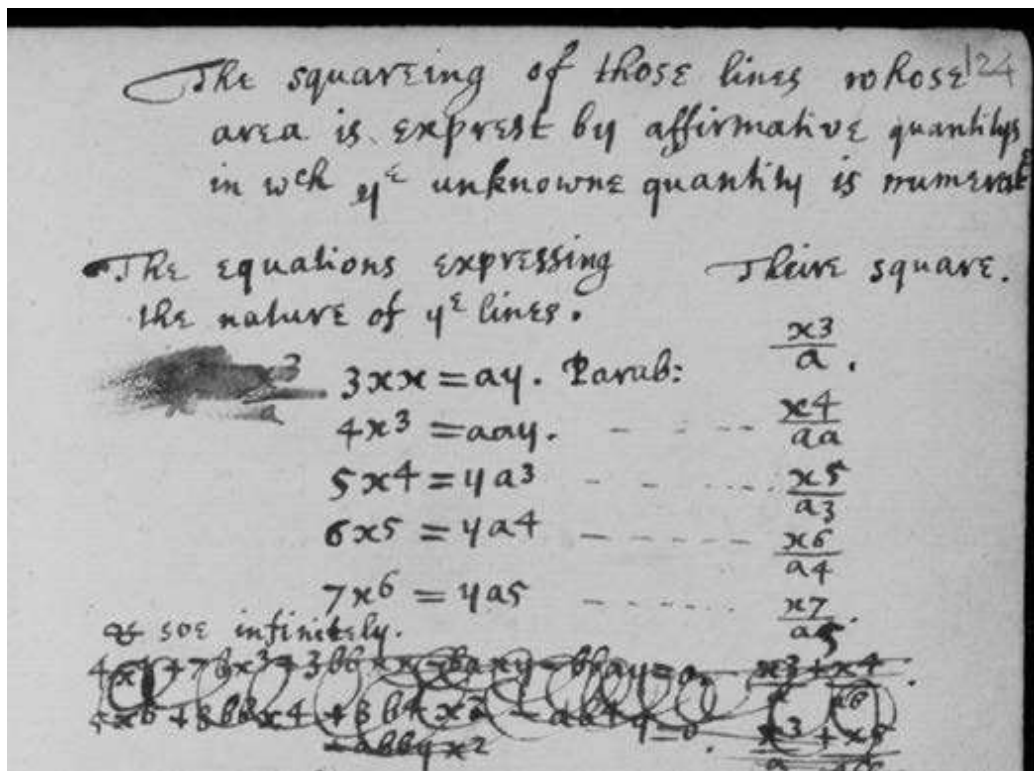 124
The squareing of those lines whose
area is exprest by affirmative quantitys
in wch yᵉ unknowne quantity is
The equations expressing Theire square.
the nature of yᵉ lines.
3xx = ay. Parab: x3/a.
4x³ = aay. - - - - x4/aa
5x4 = ya3 - - - - - x5/a3
6x5 = ya4 - - - - - - x6/a4
7x6 = ya5 - - - - - - x7/a5.
& soe infinitely.
x3 + x4
x3 + x5
- abbyx2